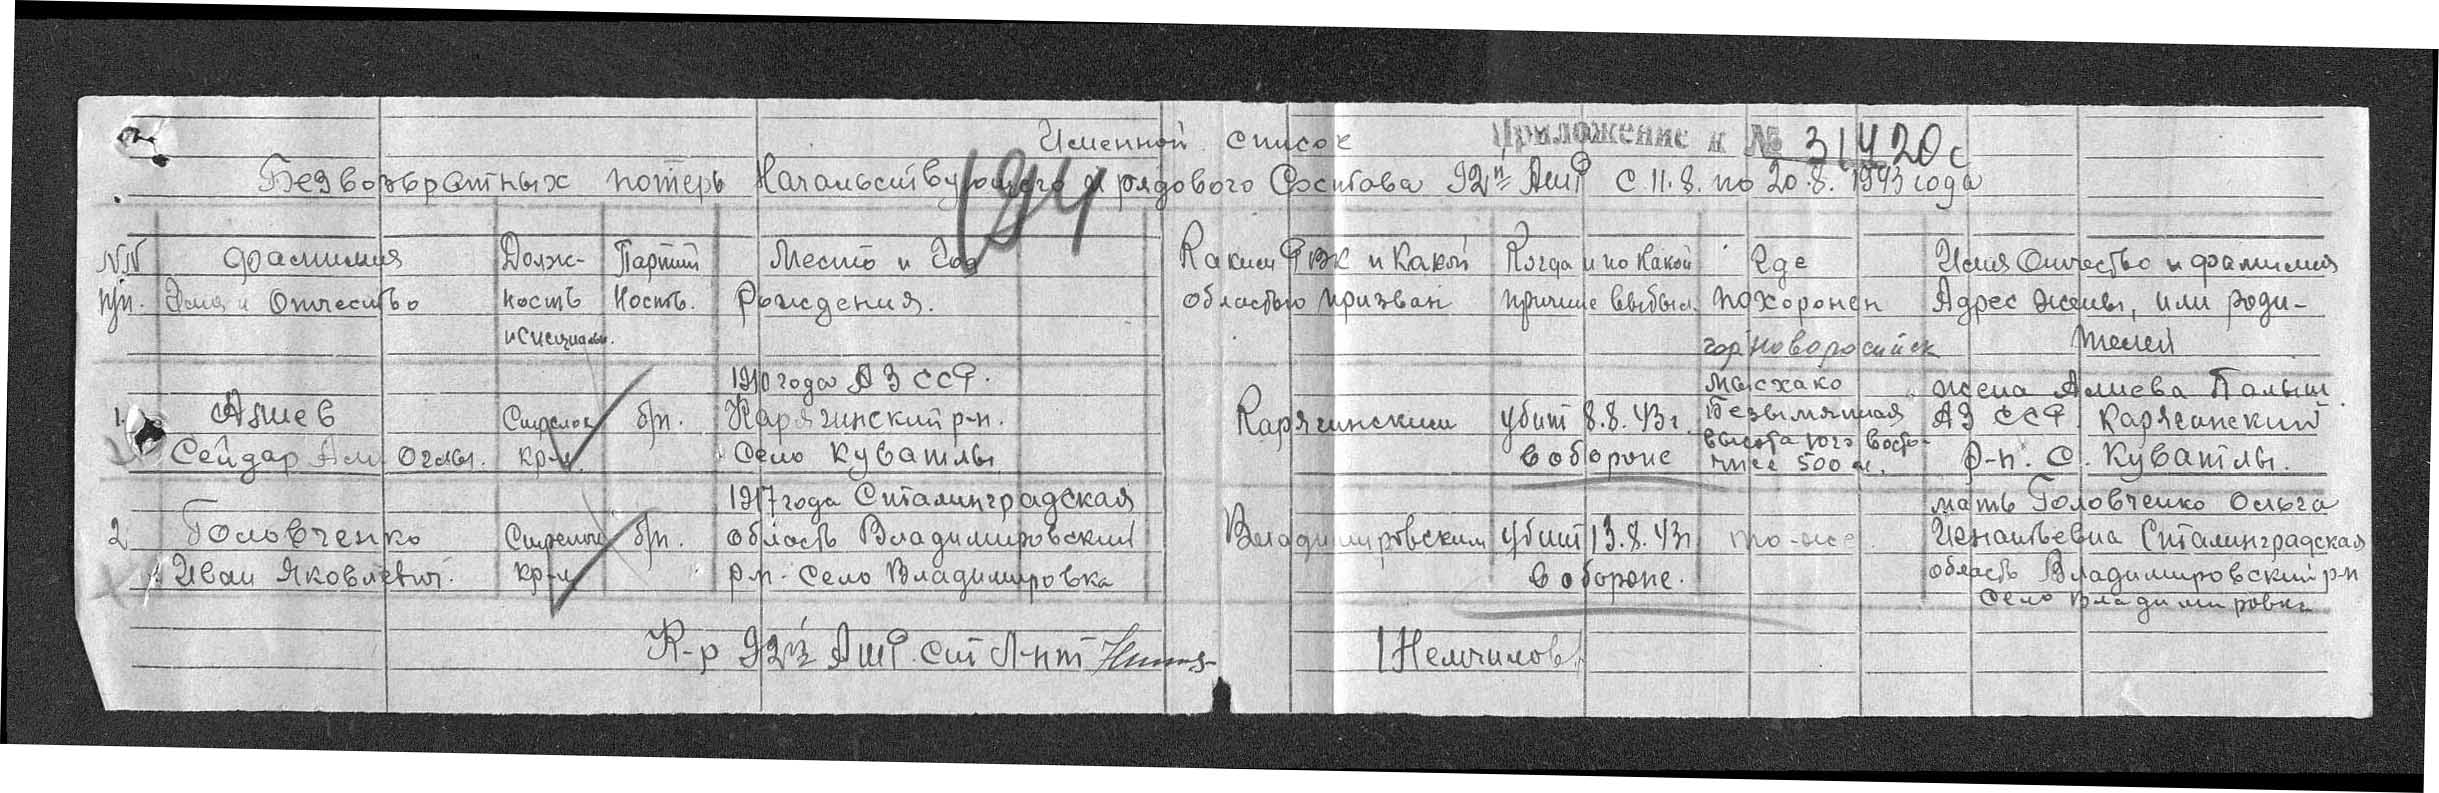 Именной список
Приложение к № 31420с
Безвозвратных потерь Начальствующего и рядового Состава 92й АшР с 11.8. по 20.8. 1943 года
194
NN Фамилия Долж- Партий Место и Год Каким РВК и Какой Когда и по Какой Где Имя Отчество и фамилия
п/п. Имя и Отчество ность Ность. Рождения. областью призван причине выбыл. похоронен Адрес жены, или роди-
и специальн. гор Новоросийск телей
1910 года АЗ ССР. Мысхако жена Алиева Балыш
1. Алиев Стрелок б/п. Карягинский р-н. Карягинским убит 8.8.43г. Безымянная АЗ ССР Карягинский
Сейдар Али Оглы. кр-ц Село Куватлы в обороне высота юго восто- р-н. С. Куватлы.
чнее 500 м.
1917 года Сталинградская мать Головченко Ольга
2 Головченко Стрелок б/п. область Владимировский Владимировским убит 13.8.43г то-же Игнатьевна Сталинградская
Иван Яковлевич. кр-ц р-н. Село Владимировка в обороне. область Владимировский р-н
Село Владимировка
К-р 92й АшР. Ст Л-нт /Немчинов/